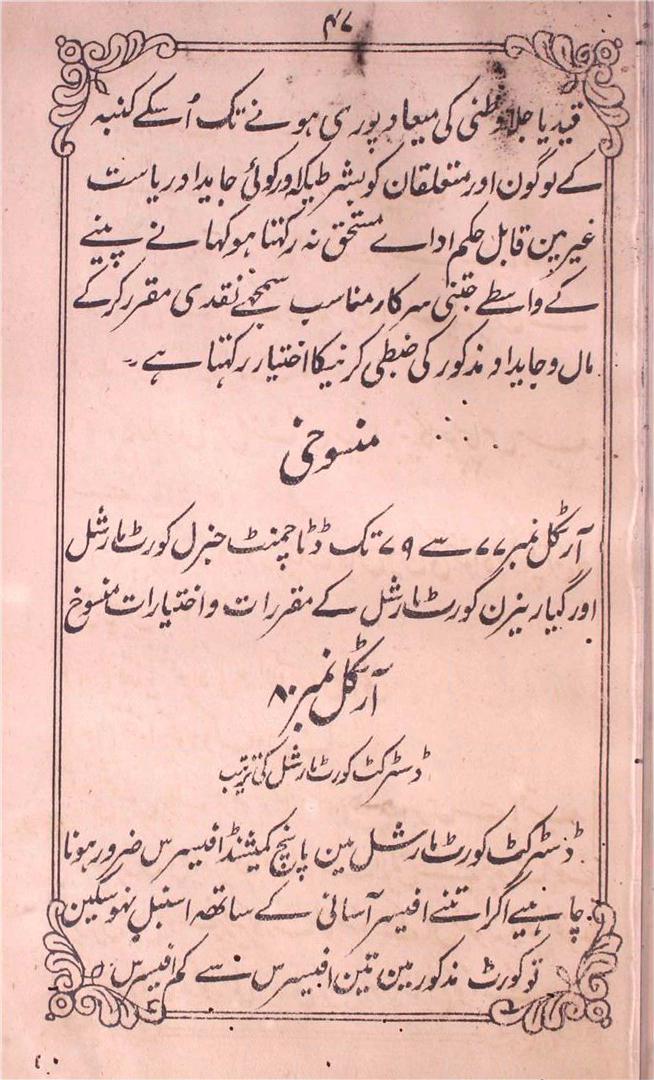 ۴۷
قید یا جلاوطنی کی میعاد پوری ہونے تک اُسکے کنبہ
کے لوگون اور متعلقان کو بشرطیکہ اور کوئی جایداد ریاست
غیر مین قابل حکم اداے مستحق نہ رکہتا ہو کہانے پینے
کے واسطے جتنی سرکار مناسب سمجھے نقدی مقرر کرکے
مال و جایداد مذکور کی ضبطی کرنیکا اختیار رکہتا ہے ۔
منسوخی
آرٹکل نمبر ۷۷ سے ۷۹ تک ڈٹاچمنٹ جنرل کورٹ مارشل
اور گیاریزن کورٹ مارشل کے مقررات و اختیارات منسوخ
آرٹکل نمبر ۸۰
ڈسٹرکٹ کورٹ مارشل کی ترتیب
ڈسٹرکٹ کورٹ مارشل مین پانچ کمیشنڈ افیسرس ضرور ہونا
چاہیے اگر اتنے افیسر آسانی کے ساتھہ اسنبل نہوسکین
تو کورٹ مذکور مین تین افیسرس سے کم افیسرس